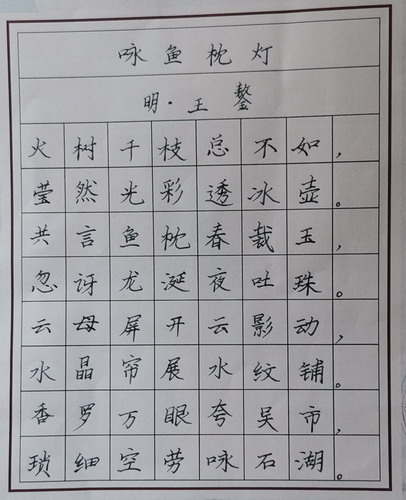 咏鱼枕灯
明·王鏊
火树千枝总不如，
莹然光彩透冰壶。
共言鱼枕春裁玉，
忽讶龙涎夜吐珠。
云母屏开云影动，
水晶帘展水纹铺。
香罗万眼夸吴市，
琐细空劳咏石湖。